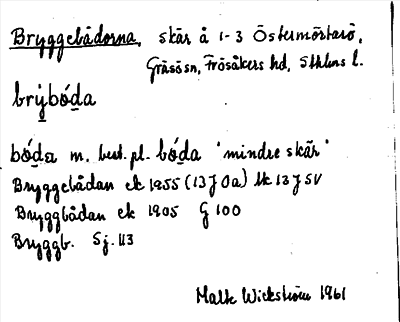 Bryggebådorna, skär å 1-3 Östermörtarö,
Gräsö sn, Frösåkers hd, Sthlms l.
brýbóda
bóda m. best. pl. bóda 'mindre skär'
Bryggebådan ek 1955 (13 J 0a) lk 13 J SV
Bryggbådan ek 1905 G 100
Bryggb. Sj. 113
Malte Wickström 1961